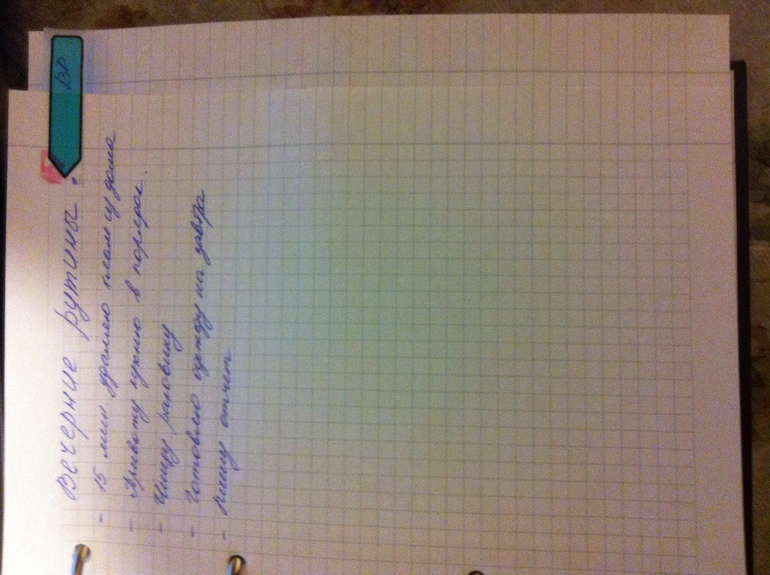 ВР
Вечерние рутины:
- 15 мин удаляю хлам из дома
- Привожу кухню в порядок.
- Чищу раковину
- Готовлю одежду на завтра
- Пишу отчет